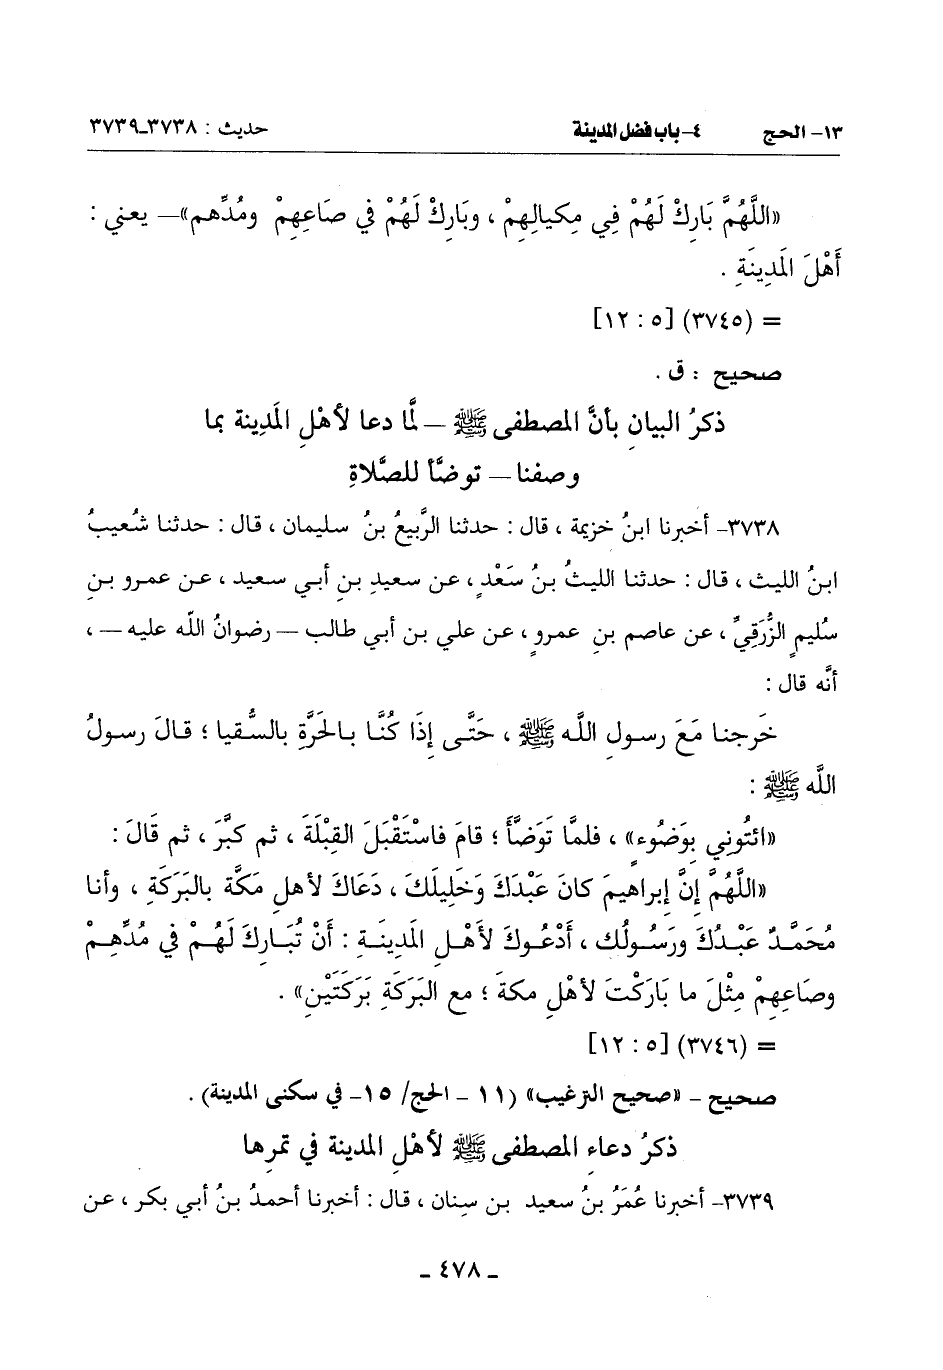 ١٣- الحج ٤- باب فضل المدينة حديث : ٣٧٣٨-٣٧٣٩
«اللَّهُمَّ بَارِكْ لَهُمْ فِي مِكيالِهِمْ ، وبَارِكْ لَهُمْ في صَاعِهِمْ ومُدِّهم»— يعني :
أَهْلَ المَدِينَةِ .
= (٣٧٤٥) [٥ : ١٢]
صحيح : ق .
ذكرُ البيانِ بأنَّ المصطفى ﷺ — لَّا دعا لأهْلِ المَدِينة بما
وصفنا — توضَّأ للصَّلاةِ
٣٧٣٨- أخبرنا ابنُ خزيمة ، قال : حدثنا الرَّبيعُ بنُ سليمان ، قال : حدثنا شُعيبُ
ابنُ الليث ، قال : حدثنا الليثُ بنُ سَعْدٍ ، عن سعيدِ بنِ أبي سعيد ، عن عمرو بنِ
سُليمٍ الزُّرَقِيِّ ، عن عاصم بنِ عمروٍ ، عن علي بن أبي طالب — رضوانُ اللَّه عليه — ،
أنَّه قال :
خَرجنا مَعَ رسولِ اللَّه ﷺ ، حَتَّى إِذَا كُنَّا بالحَرَّةِ بالسُّقيا ؛ قالَ رسولُ
اللَّه ﷺ :
«ائتُوني بوَضُوءٍ» ، فلمَّا تَوَضَّأَ ؛ قامَ فاسْتَقْبَلَ القِبْلَةَ ، ثم كبَّر ، ثم قَالَ :
«اللَّهُمَّ إِنَّ إبراهيمَ كانَ عَبْدَكَ وَخَلِيلَكَ ، دَعَاكَ لأهلِ مَكَّةَ بالبَرَكَةِ ، وأنا
مُحَمَّدٌ عَبْدُكَ ورَسُولُك ، أَدْعُوكَ لأَهْلِ المَدِينَةِ : أَنْ تُبَارِكَ لَهُمْ في مُدِّهِمْ
وصَاعِهِمْ مِثْلَ ما بَارَكْتَ لأهْلِ مكةَ ؛ مع البَرَكَةِ بَرَكَتَيْنِ» .
= (٣٧٤٦) [٥ : ١٢]
صحيح - «صحيح الترغيب» (١١ - الحج/ ١٥- في سكنى المدينة) .
ذكرُ دعاءِ المصطفى ﷺ لأهْلِ المدينة في تمرِها
٣٧٣٩- أخبرنا عُمَرُ بنُ سعيد بن سِنان ، قال : أخبرنا أحمدُ بنُ أبي بكر ، عن
- ٤٧٨ -